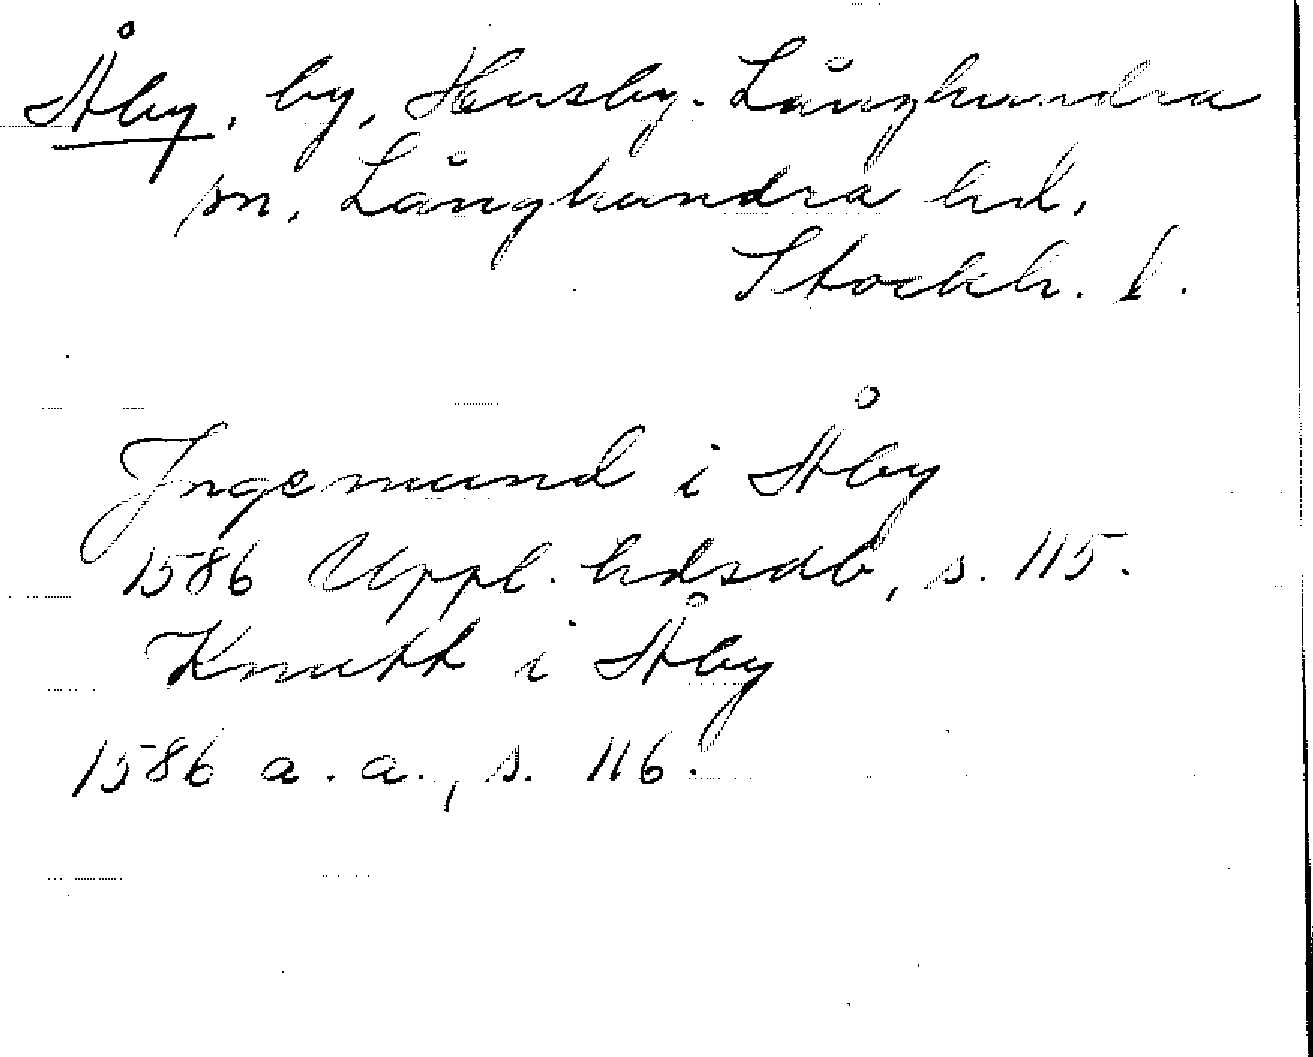 Åby, by, Husby-Långhundra
sn, Långhundra hd,
Stockh. l.
Ingemund i Åby
1586 Uppl. hdsdb, s. 115.
Knutt i Åby
1586 a. a., s. 116.